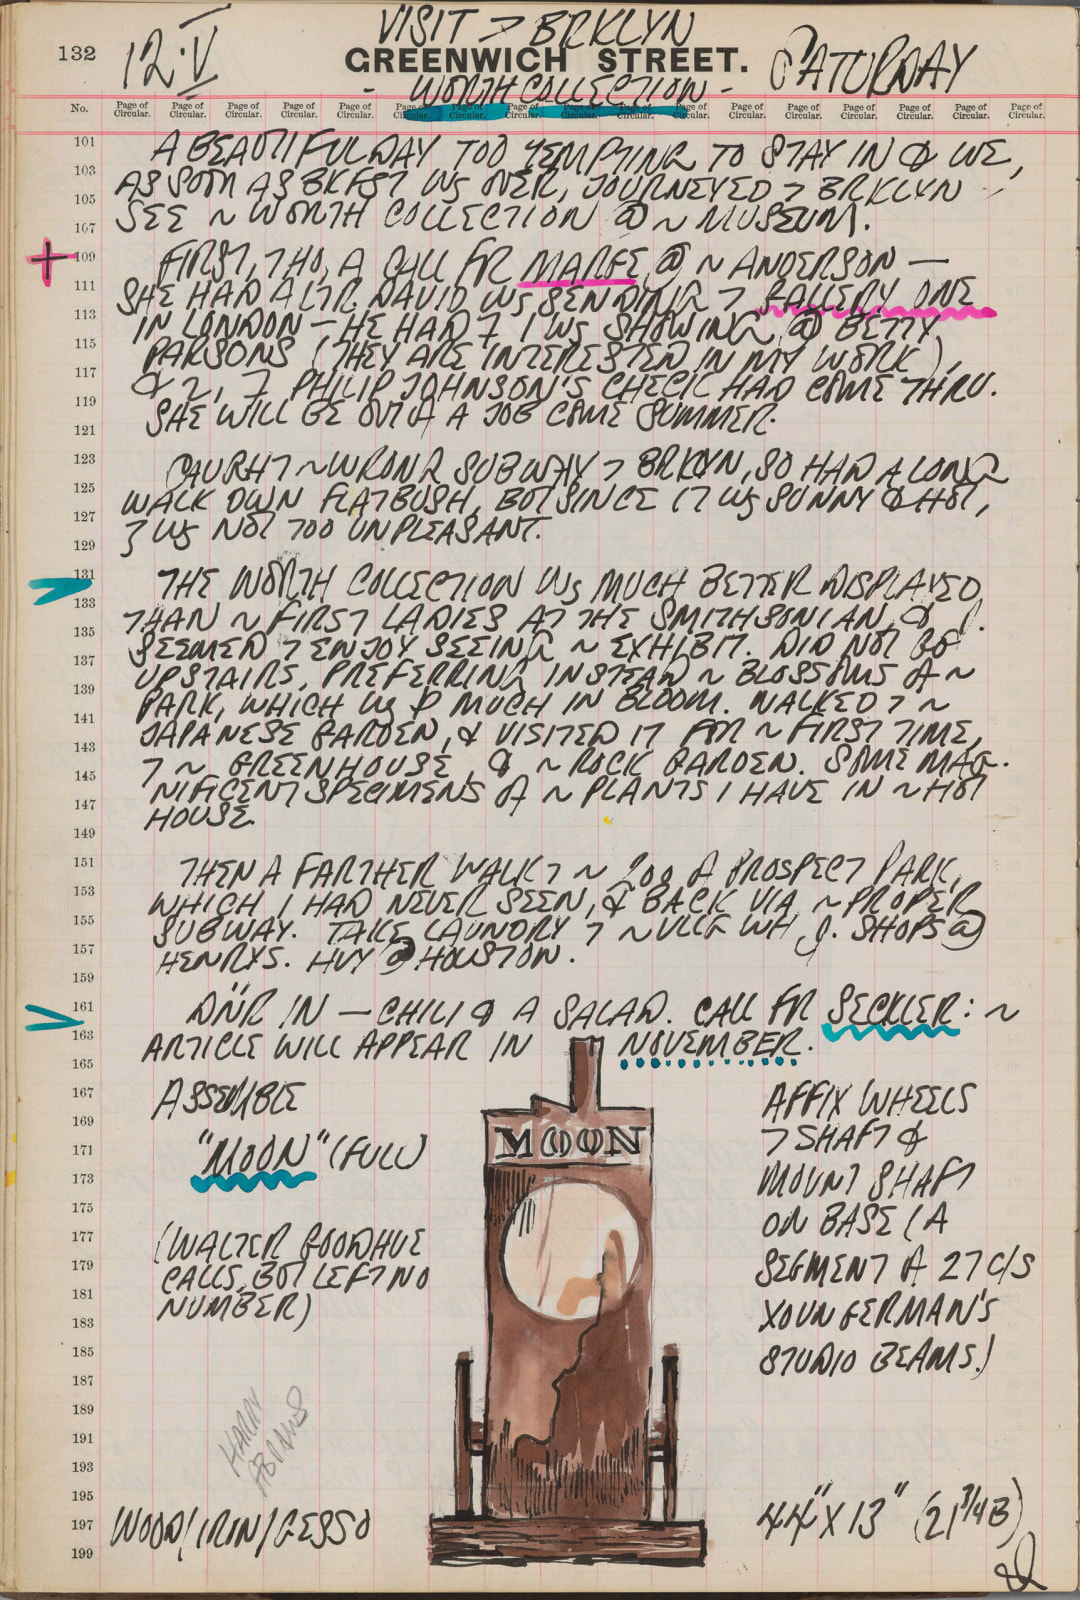 132
12·V
VISIT > BRKLYN
GREENWICH STREET.
SATURDAY
- WORTH COLLECTION -
No. Page of Circular. Page of Circular. Page of Circular. Page of Circular. Page of Circular. Page of Circular. Page of Circular. Page of Circular. Page of Circular. Page of Circular. Page of Circular. Page of Circular. Page of Circular. Page of Circular. Page of Circular. Page of Circular. Page of Circular.
101
103
105
107
109
111
113
115
117
119
121
123
125
127
129
131
133
135
137
139
141
143
145
147
149
151
153
155
157
159
161
163
165
167
169
171
173
175
177
179
181
183
185
187
189
191
193
195
197
199
A BEAUTIFUL DAY TOO TEMPTING TO STAY IN & WE,
AS SOON AS BKFST WS OVER, JOURNEYED > BRKLYN
SEE ~ WORTH COLLECTION @ ~ MUSEUM.
+ FIRST, THO, A CALL FR @ ~ ANDERSON —
SHE HAD A LTR. DAVID WS SENDING > GALLERY ONE
IN LONDON – HE HAD 7 I WS SHOWING @ BETTY
PARSONS (THEY ARE INTERESTED IN MY WORK),
& 2, 7 PHILIP JOHNSON'S CHECK HAD COME THRU.
SHE WILL BE OUT A A JOB COME SUMMER.
CAUGHT ~ WRONG SUBWAY > BRKLYN, SO HAD A LONG
WALK DOWN FLATBUSH, BUT SINCE IT WS SUNNY & HOT,
7 WS NOT TOO UNPLEASANT.
THE WORTH COLLECTION WS MUCH BETTER DISPLAYED
THAN ~ FIRST LADIES AT THE SMITHSONIAN, & J.
SEEMED > ENJOY SEEING ~ EXHIBIT. DID NOT GO
UPSTAIRS, PREFERRING INSTEAD ~ BLOSSOMS A ~
PARK, WHICH WS MUCH IN BLOOM. WALKED > ~
JAPANESE GARDEN, & VISITED IT FOR ~ FIRST TIME,
> ~ GREENHOUSE, & ~ ROCK GARDEN. SOME MAG-
NIFICENT SPECIMENS A ~ PLANTS I HAVE IN ~ HOT
HOUSE.
THEN A FARTHER WALK > ~ ZOO A PROSPECT PARK,
WHICH I HAD NEVER SEEN, & BACK VIA ~ PROPER
SUBWAY. TAKE LAUNDRY > ~ VLLG WH J. SHOPS @
HENRYS. HVY @ HOUSTON.
DNR IN — CHILI & A SALAD. CALL FR SECKLER: ~
ARTICLE WILL APPEAR IN NOVEMBER.
ASSEMBLE
"MOON" (FULL)
(WALTER GOODHUE
CALLS, BUT LEFT NO
NUMBER)
MOON
AFFIX WHEELS
> SHAFT &
MOUNT SHAFT
ON BASE (A
SEGMENT A 27 C/S
YOUNGERMAN'S
STUDIO BEAMS.)
HARRY
ABRAMS
WOOD/IRON/GESSO
44" X 13" (21 3/4 B)